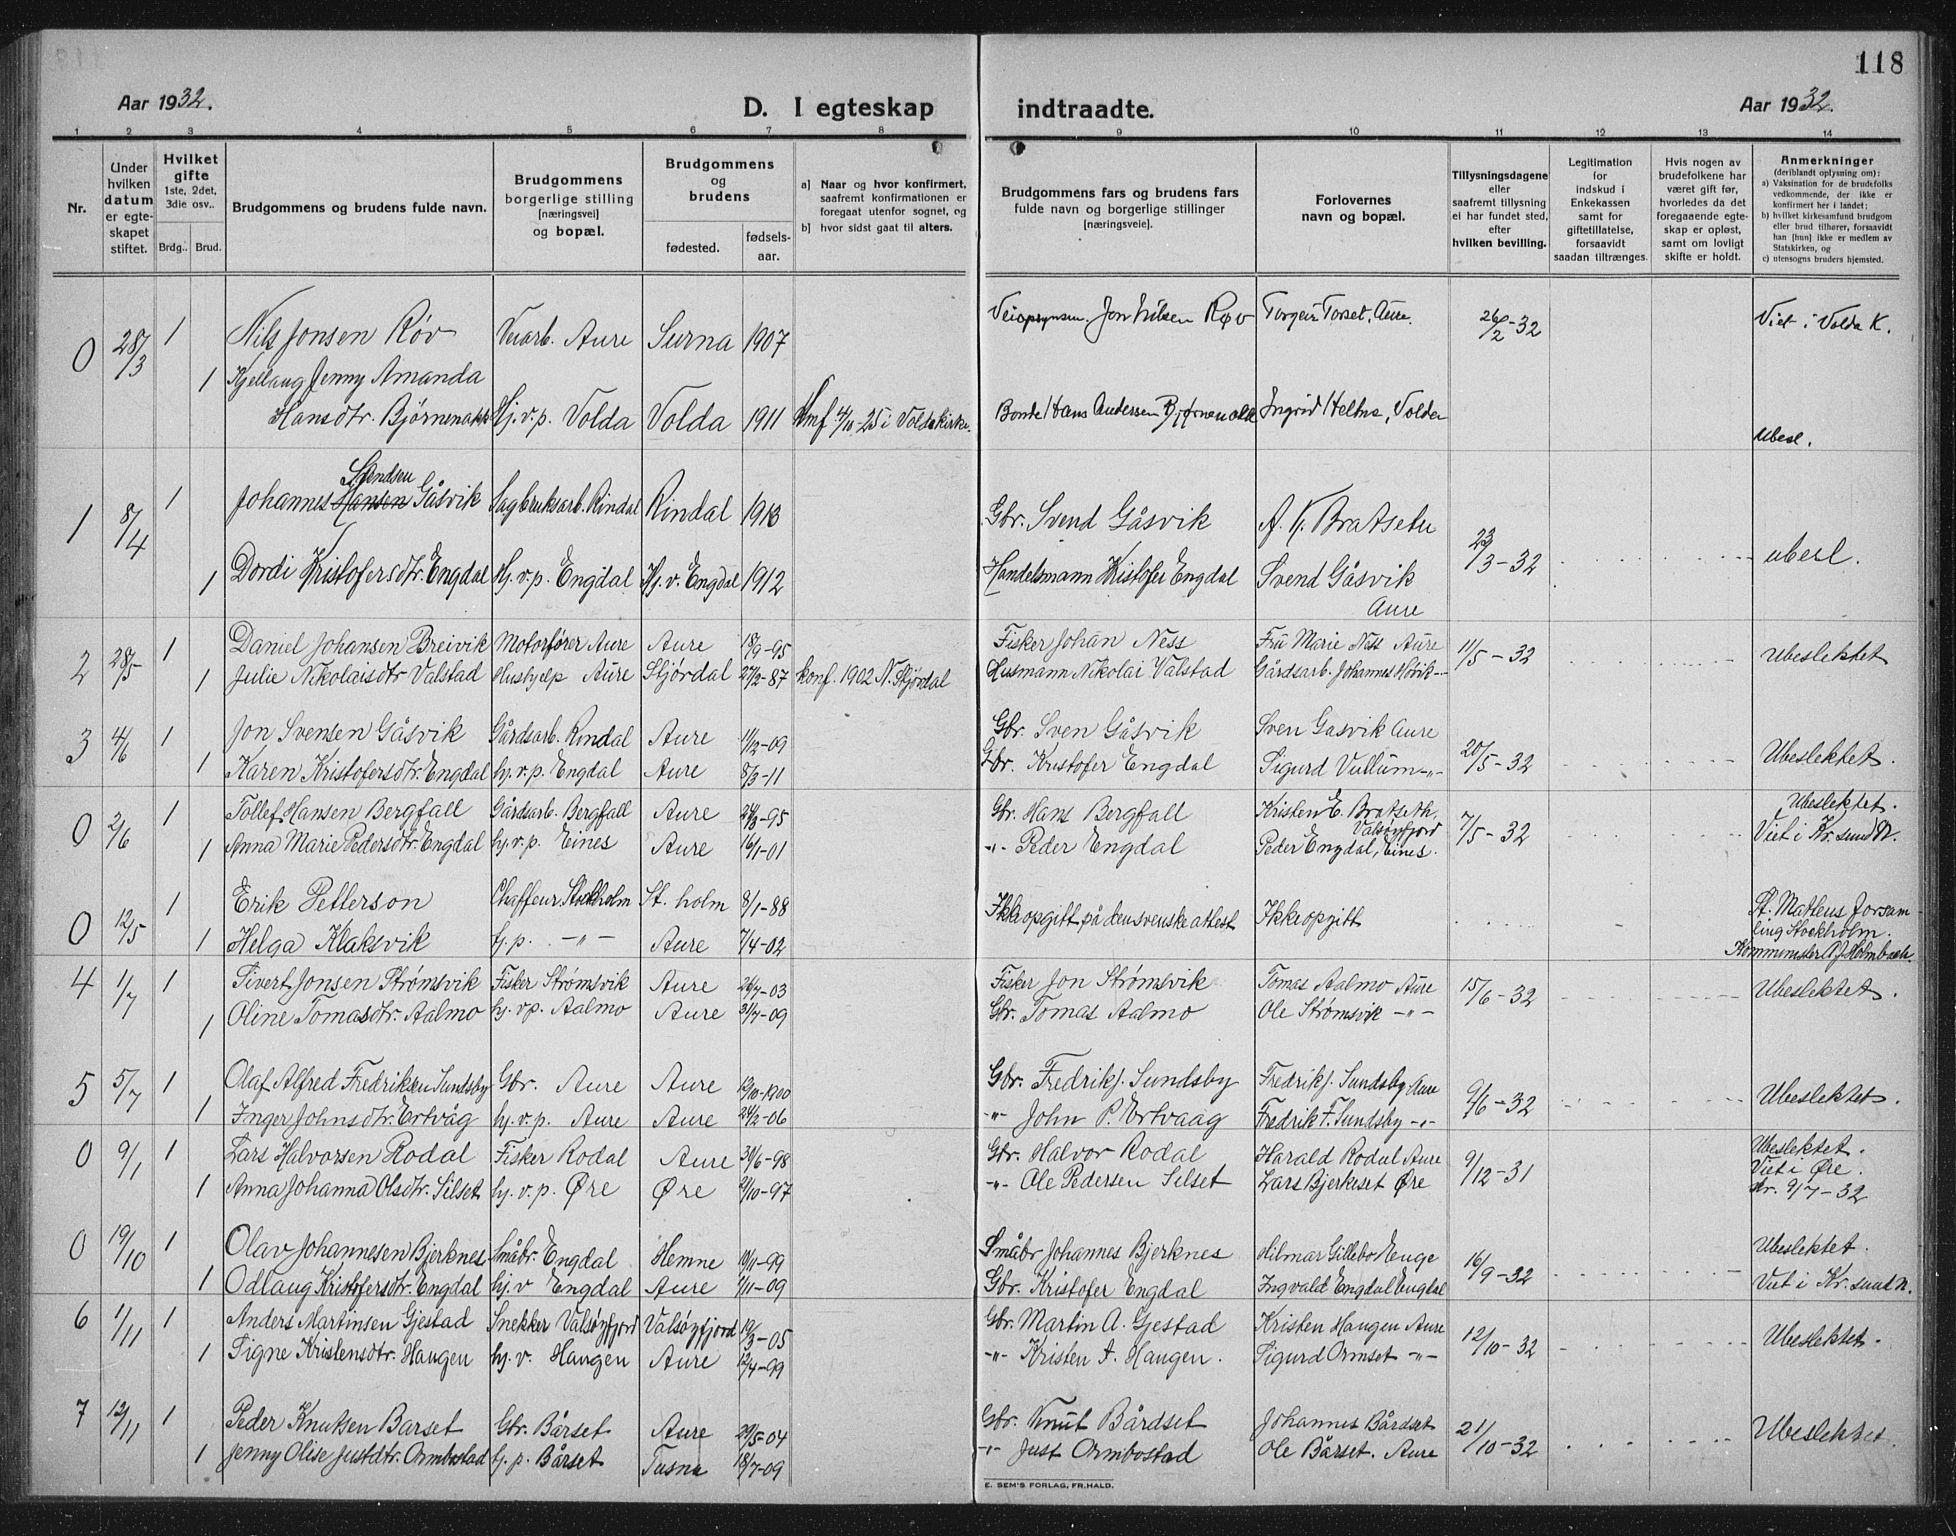 118
Aar 1932.
D. I egteskap indtraadte.
Aar 1932.
1 2 3 4 5 6 7 8 9 10 11 12 13 14
Nr.
Under hvilken datum er egteskapet stiftet.
Hvilket gifte 1ste, 2det, 3die osv..
Brdg.. Brud.
Brudgommens og brudens fulde navn.
Brudgommens borgerlige stilling [næringsvei] og bopæl.
Brudgommens og brudens
fødested.
fødselsaar.
a] Naar og hvor konfirmert, saafremt konfirmationen er foregaat utenfor sognet, og
b] hvor sidst gaat til alters.
Brudgommens fars og brudens fars fulde navn og borgerlige stillinger [næringsveie].
Forlovernes navn og bopæl.
Tillysningsdagene eller saafremt tillysning ei har fundet sted, efter hvilken bevilling.
Legitimation for indskud i Enkekassen samt for giftetillatelse, forsaavidt saadan tiltrænges.
Hvis nogen av brudefolkene har været gift før, hvorledes da det foregaaende egteskap er opløst, samt om lovligt skifte er holdt.
Anmerkninger (deriblandt oplysning om):
a) Vaksination for de brudefolks vedkommende, der ikke er konfirmert her i landet;
b) hvilket kirkesamfund brudgom eller brud tilhører, forsaavidt han [hun] ikke er medlem av Statskirken, og
c) utensogns bruders hjemsted.
0 28/3 1 Nils Jonsen Røv Veiarb. Aure Surna 1907 Veiopsynsm. Jon Nilsen Røv Torgeir Torset, Aure. 26/2-32 Viet i Volda K.
1 Kjellaug Jenny Amanda
Hansdtr. Bjørnenakk Hj. v. p. Volda Volda 1911 Konf 4/10-25 i Volda kirke. Bonde Hans Andersen Ingrid Helms, Volda Ubesl.
Svendsen
1 8/4 1 Johannes Hansen Gåsvik Sagbruksarb. Rindal Rindal 1913 Gbr. Svend Gåsvik A. K. Bratseter 23/3-32 ubesl.
1 Dordi Kristofersdtr. Engdal Hj. v. p. Engdal Hj. v. Engdal 1912 Handelsmann Kristofer Engdal Svend Gåsvik
Aure
2 28/5 1 Daniel Johansen Breivik Motorfører Aure Aure 18/9-95 Fisker Johan Ness Fru Marie Ness Aure 11/5-32 Ubeslektet
1 Julie Nikolaisdtr Valstad Hushjelp Aure Stjørdal 27/2-87 konf. 1902 N. Stjørdal Husmann Nikolai Valstad Gårdsarb. Johannes Høvik -"-
3 4/6 1 Jon Svensen Gåsvik Gårdsarb. Rindal Aure 11/2-09 Gbr. Sven Gåsvik Sven Gasvik Aure 20/5-32 Ubeslektet.
1 Karen Kristofersdtr. Engdal hj. v. p. Engdal Aure 8/3-11 Gbr. Kristofer Engdal Sigurd Vullum -"-
0 2/6 1 Tollef Hansen Bergfall Gårdsarb. Bergfall Aure 24/3-95 Gbr. Hans Bergfall Kristen E. Bratseth, Valsøyfjord 7/5-32 Ubeslektet.
1 Anna Marie Pedersdtr. Engdal hj. v. p. Eines Aure 16/1-01 -"- Peder Engdal Peder Engdal, Eines. Viet i Kr. sund N.
0 12/5 1 Erik Petterson Chaffeur Stockholm St. holm 8/1-88 Ikke opgitt på den svenske attest Ikke opgitt St. Mateus Forsam-
ling Stockholm.
1 Helga Klaksvik hj. p. -"- Aure 7/4-02 Komminister A. J. Holmbäck.
4 1/7 1 Sivert Jonsen Strømsvik Fisker Strømsvik Aure 26/7-03 Fisker Jon Strømsvik Tomas Aalmo Aure 15/6-32 Ubeslektet.
1 Oline Tomasdtr. Aalmo hj. v. p. Aalmo Aure 31/7-09 Gbr. Tomas Aalmo Ole Strømsvik -"-
5 5/7 1 Olaf Alfred Fredriksen Sundsby Gbr. Aure Aure 12/10-1900 Gbr. Fredrik J. Sundsby Fredrik J. Sundsby Aure 9/6-32 Ubeslektet.
1 Inger Johnsdtr. Ertvåg hj. v. p. Aure Aure 24/2-06 -"- John P. Ertvaag Fredrik F. Sundsby -"-
0 9/1 1 Lars Halvorsen Rodal Fisker Rodal Aure 30/6-98 Gbr. Halvor Rodal Harald Rodal Aure 9/12-31 Ubeslektet.
Viet i Øre.
1 Anna Johanna Olsdtr. Silset hj. v. p. Øre Øre 2/10-97 -"- Ole Pedersen Silset Lars Bjerkeset Øre 9/7-32
0 19/10 1 Olav Johannesen Bjerknes Småbr. Engdal Hemne 10/11-99 Småbr Johannes Bjerknes Hilmar Gillebo Enge 16/9-32 Ubeslektet.
1 Odlaug Kristofersdtr. Engdal hj. v Engdal Aure 7/11-09 Gbr. Kristofer Engdal Ingvald Engdal Engdal Viet i Kr. sund N.
6 1/11 1 Anders Martinsen Gjestad Snekker Valsøyfjord Valsøyfjord 19/3-05 Gbr. Martin A. Gjestad Kristen Haugen Aure 12/10-32 Ubeslektet.
1 Signe Kristensdtr. Haugen hj. v. Haugen Aure 12/4-99 -"- Kristen A. Haugen. Sigurd Ormset -"-
7 12/11 1 Peder Knutsen Barset Gbr. Bårset Aure 29/5-04 Gbr. Knut Bårdset Johannes Bårdset 21/10-32 Ubeslektet.
1 Jenny Olise Justdtr. Ormbostad hj. p. Bårset Tusna 18/7-09 -"- Just Ormbostad Ole Bårset. Aure
E. SEM'S FORLAG, FR.HALD.